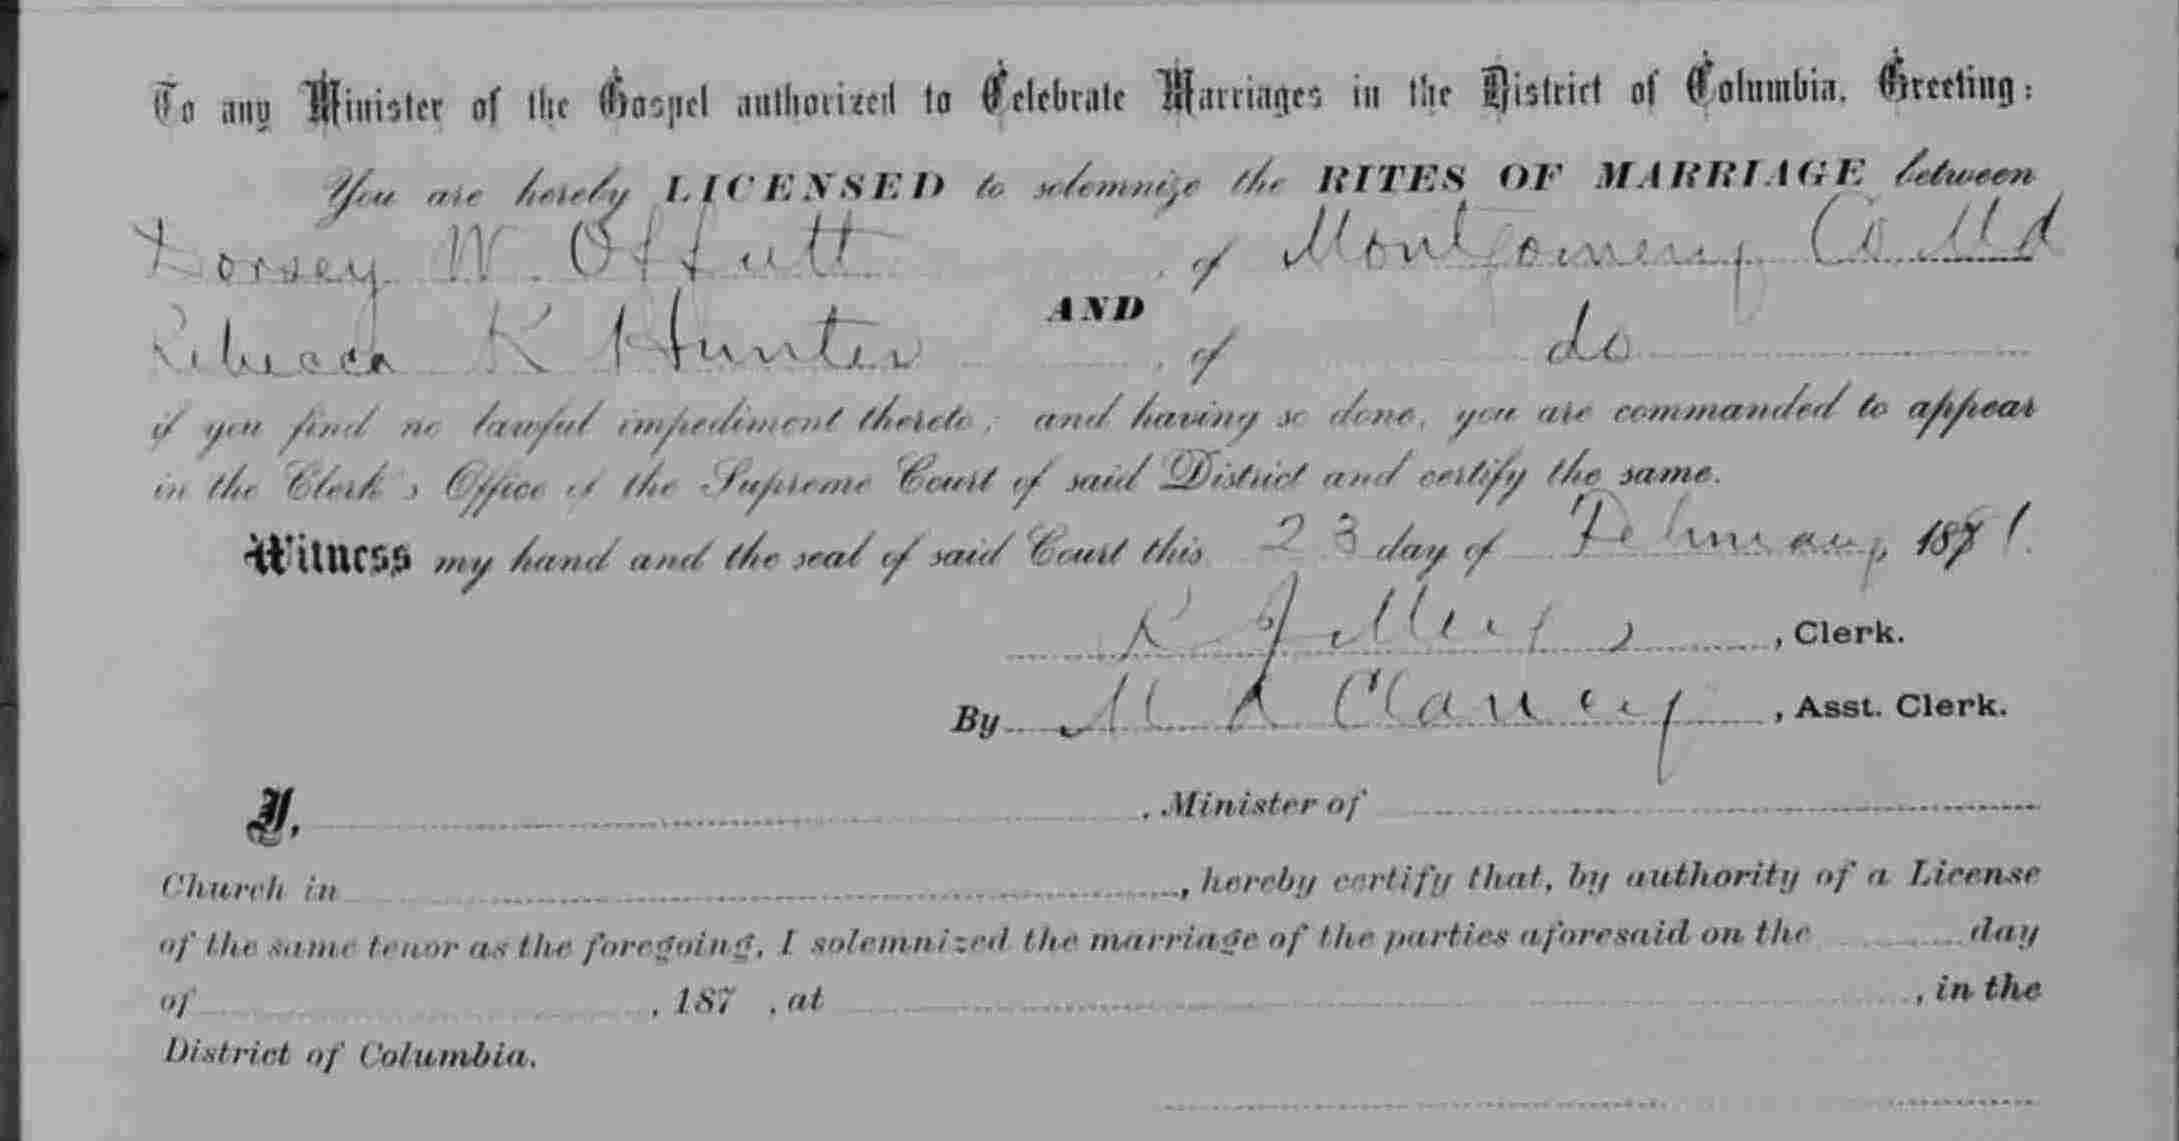 To any Minister of the Gospel authorized to Celebrate Marriages in the District of Columbia, Greeting:
You are hereby LICENSED to solemnize the RITES OF MARRIAGE between
Dorsey W. Offutt, of Montgomery Co Md
AND
Rebecca K Hunter, of do
if you find no lawful impediment thereto; and having so done, you are commanded to appear
in the Clerk's Office of the Supreme Court of said District and certify the same.
Witness my hand and the seal of said Court this 23 day of February 1881.
R J Meigs, Clerk.
By M A Clancy, Asst. Clerk.
I, , Minister of
Church in , hereby certify that, by authority of a License
of the same tenor as the foregoing, I solemnized the marriage of the parties aforesaid on the day
of , 187 , at , in the
District of Columbia.